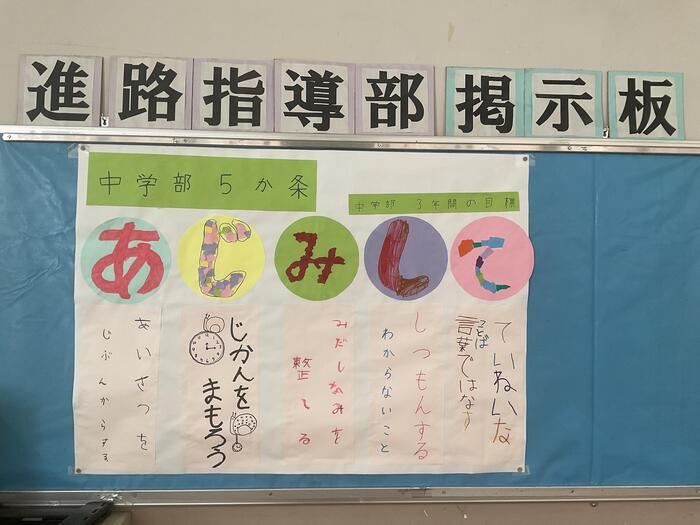 進路指導部掲示板
中学部5か条
中学部 3年間の目標
あじみして
あいさつを
じぶんからする
じかんを
まもろう
みだしなみを
整える
しつもんする
わからないこと
ていねいな
ことば
言葉ではなす